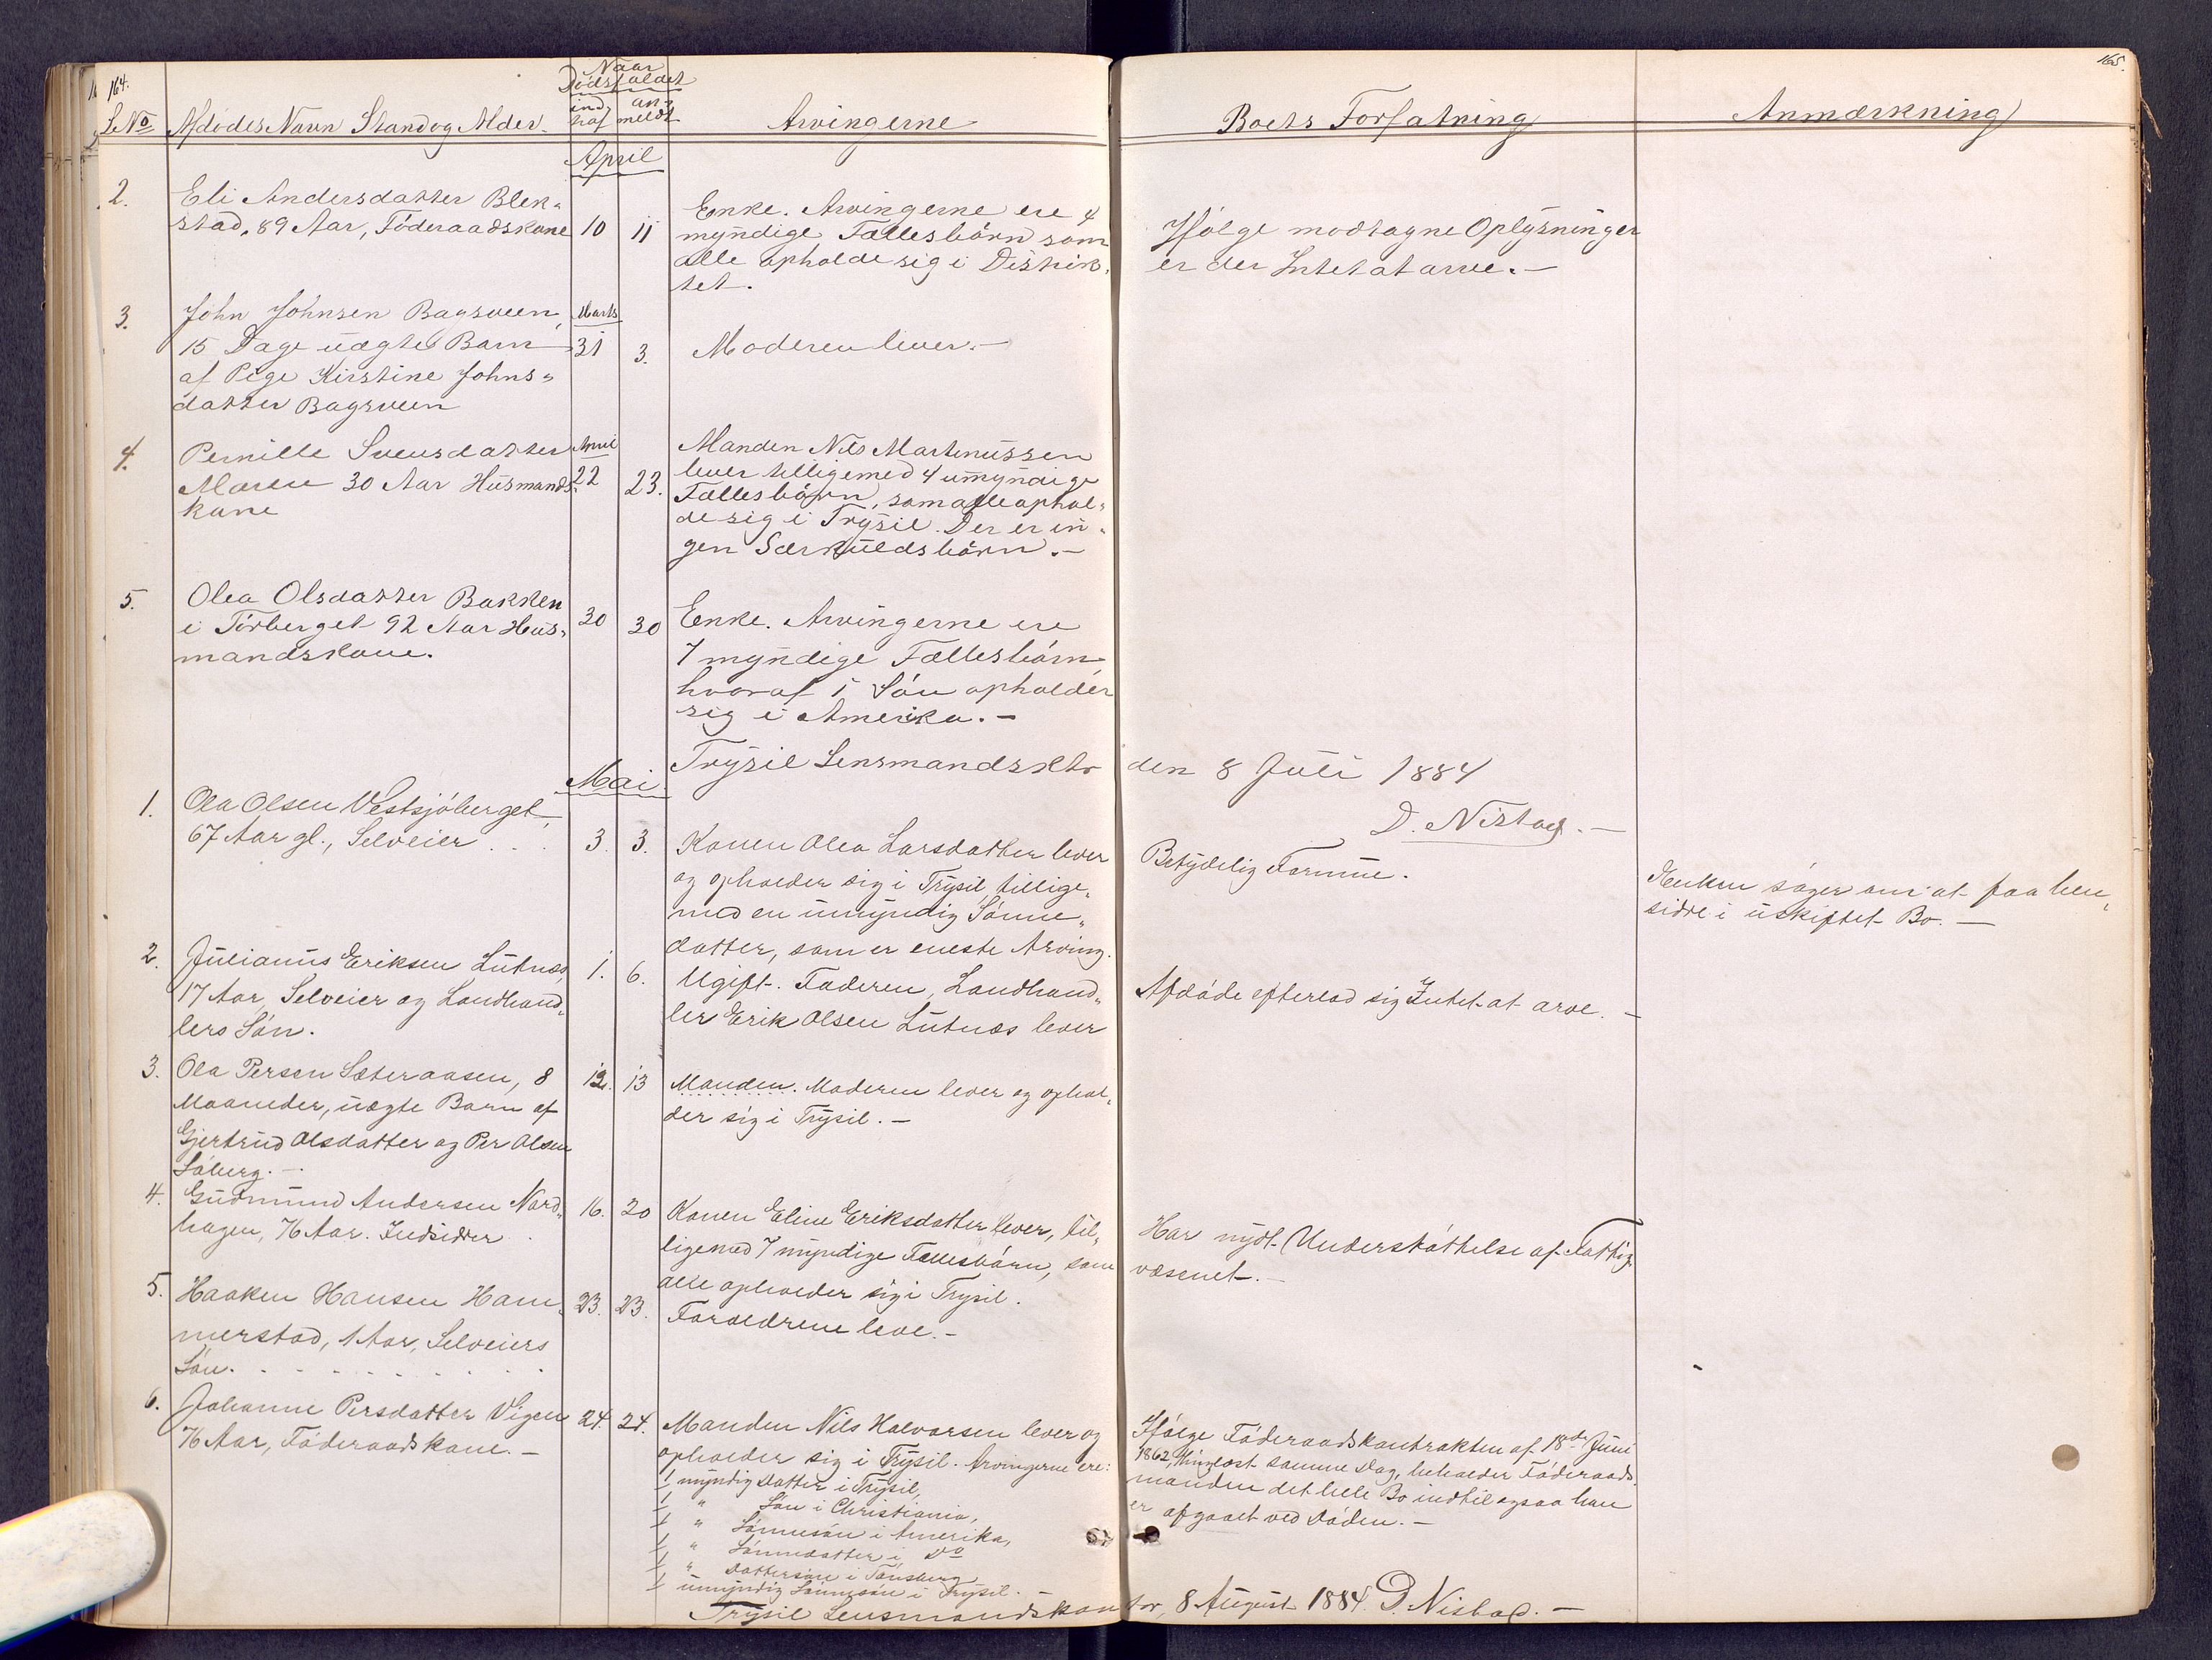 164.
165.
Naar
Dödsfaldet
L. No Afdödes Navn Stand og Alder
ind- traf
an- meldt
Arvingerne
Boets Forfatning
Anmærkning
April
2.
Eli Andersdatter Blek-
stad, 89 Aar, Föderaadskone
10
11
Enke. Arvingerne ere 4
myndige Fællesbörn som
alle opholde sig i Distrik-
tet.
Ifölge modtagne Oplysninger
er der Intet at arve. -
3.
John Johnsen Bagsveen,
15 Dage uægte Barn
af Pige Kirstine Johns-
datter Bagsveen
Marts
31
3.
Moderen lever. -
4.
Pernille Svensdatter
Moren 30 Aar Husmands-
kone
April
22
23.
Manden Nils Martinussen
lever tilligemed 4 umyndige
Fællesbörn, som alle ophol-
de sig i Trysil. Der er in-
gen Særkuldsbörn. -
5.
Olea Olsdatter Bakken
i Törberget 92 Aar Hus-
mandskone.
30
30
Enke. Arvingerne ere
7 myndige Fællesbörn
hvoraf 1 Sön opholder
sig i Amerika. -
Trysil Lensmandsktr den 8 Juli 1884
D. Nistad. -
Mai
1.
Ola Olsen Vestsjöberget,
67 Aar gl., Selveier . . .
3.
3.
Konen Olea Larsdatter lever
og opholder sig i Trysil tillige-
med en umyndig Sönne-
datter, som er eneste Arving.
Betydelig Formue.
Enken söger om at faa hen-
sidde i uskiftet Bo. -
2.
Julianus Eriksen Lutnæs,
17 Aar, Selveier og Landhand-
lers Sön.
1.
6.
Ugift. Faderen, Landhand-
ler Erik Olsen Lutnæs lever
Afdöde efterlod sig Intet at arve. -
3.
Ola Persen Sæteraasen, 8
Maaneder, uægte Barn af
Gjertrud Olsdatter og Per Olsen
Söberg. -
12.
13
Manden. Moderen lever og ophol-
der sig i Trysil. -
4.
Gudmund Andersen Nord-
hagen, 76 Aar. Indsidder .
16.
20
Konen Eline Eriksdatter lever, til-
ligemed 7 myndige Fællesbörn, som
alle opholder sig i Trysil.
Har nydt Understöttelse af Fattig-
væsenet. -
5.
Haaken Hansen Ham-
merstad, 1 Aar, Selveiers
Sön. . . . . . . . .
23.
23.
Forældrene leve. -
6.
Johanne Persdatter Vigen
76 Aar, Föderaadskone. -
24.
24.
Manden Nils Halvorsen lever og
opholder sig i Trysil. Arvingerne ere:
1 myndig Datter i Trysil,
1 " Sön i Christiania,
1 " Sönnesön i Amerika,
1 " Sönnedatter i Do
1 " Dattersön i Tönsberg
1 umyndig Sönnesön i Trysil. -
Ifölge Föderaadskontrakten af 18de Juni
1862, thinglæst samme Dag, beholder Föderaads-
manden det hele Bo indtil ogsaa han
er afgaaet ved Döden. -
Trysil Lensmandskontor, 8 August 1884. D. Nistad. -